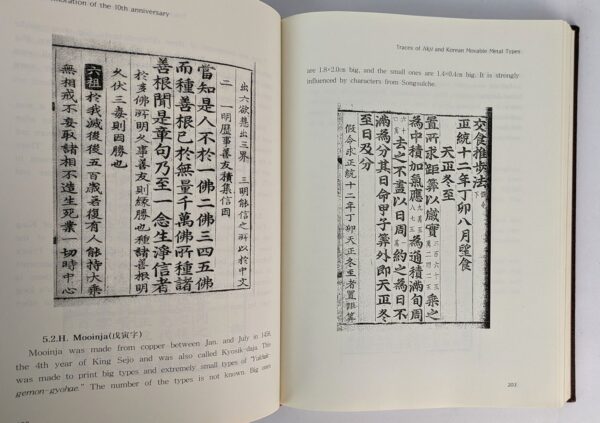 moration of the 10th anniversary
二 一明歷事善友積集信因
當知是人不於一佛二佛三四五佛
而種善根已於無量千萬佛所種諸
善根聞是章句乃至一念生淨信者
久伏三妄則因勝也
六祖 於我滅後後五百歲若復有人能持大乘
無相戒不妄取諸相不造生死業一切時中心
5.2.H. Mooinja(戊寅字)
Mooinja was made from copper between Jan. and July in
the 4th year of King Sejo and was also called Kyosik-daja. This
was made to print big types and extremely small types of
gemon-gyohae." The number of the types is not known. Big ones
Traces of Jikji and Korean Movable Metal Types
are 1.8×2.0cm big, and the small ones are 1.4×0.4cm big. It is strongly
influenced by characters from Songsulche.
交食推步法
正統十二年丁卯八月望食
天正冬至
置所求距筭以歲實 乘之
為中積加氣應 為通積滿旬周
去之不盡以日周 約之為日不
滿為分其日命甲子筭外即天正冬
至日及分
假令求正統十二年丁卯天正冬至者置距筭
203